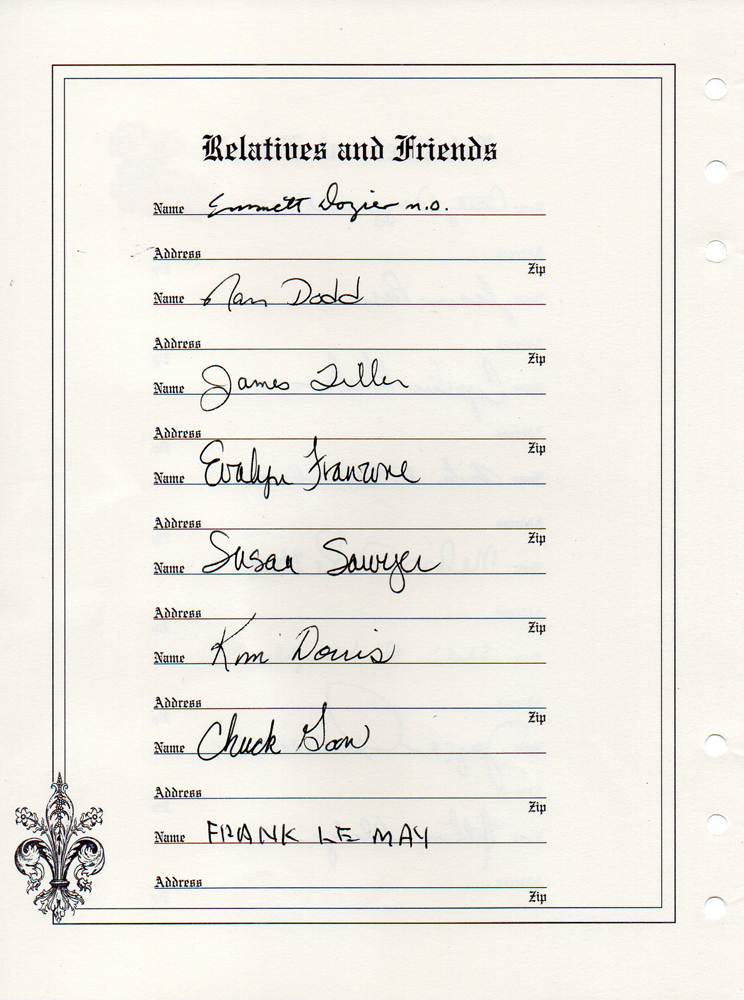 Relatives and Friends
Name Emmett Dozier M.D.
Address
Zip
Name Nan Dodd
Address
Zip
Name James Tiller
Address
Zip
Name Evalyn Franzone
Address
Zip
Name Susan Sawyer
Address
Zip
Name Kim Dorris
Address
Zip
Name Chuck
Address
Zip
Name FRANK LE MAY
Address
Zip